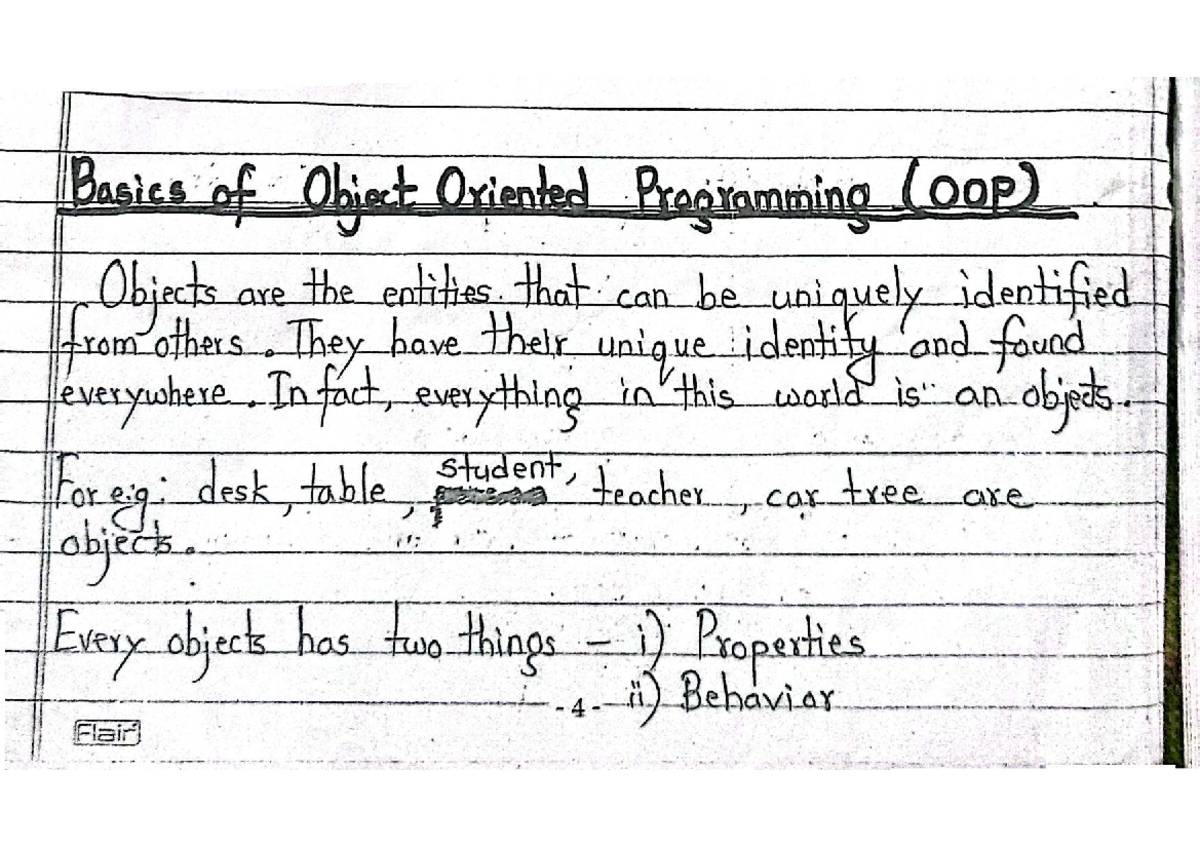 Basics of Object Oriented Programming (OOP)
Objects are the entities that can be uniquely identified
from others. They have their unique identity and found
everywhere. In fact, everything in this world is an objects.
For e.g: desk, table, student, teacher, car tree are
objects.
Every objects has two things - i) Properties
- 4 - ii) Behavior
Flair